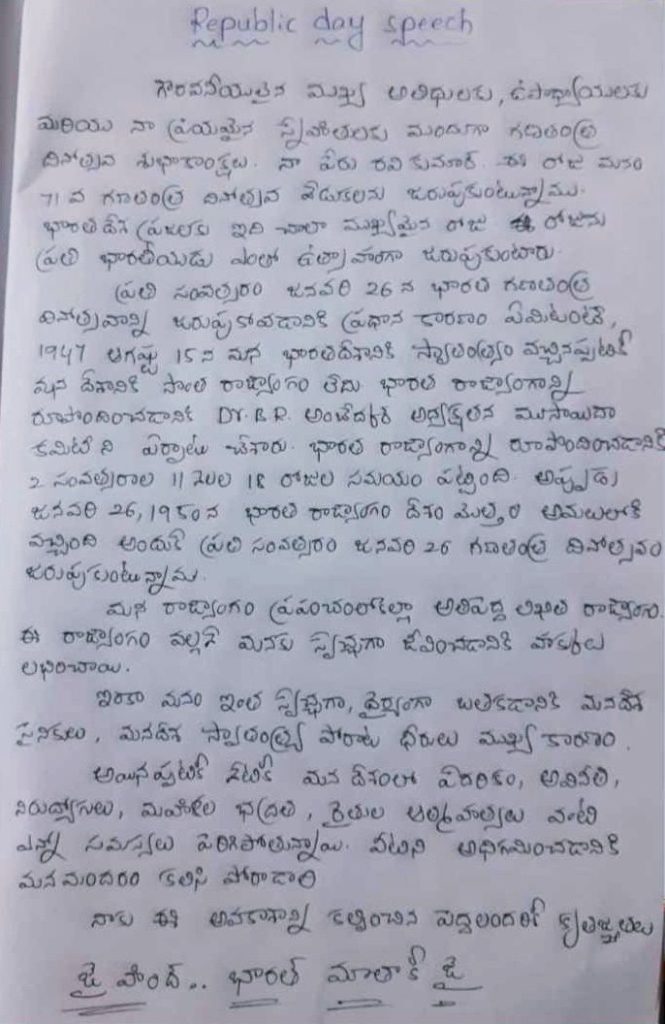 Republic day speech
గౌరవనీయులైన ముఖ్య అతిథులకు, ఉపాధ్యాయులకు
మరియు నా ప్రియమైన స్నేహితులకు ముందుగా గణతంత్ర
దినోత్సవ శుభాకాంక్షలు. నా పేరు రవి కుమార్. ఈ రోజు మనం
71 వ గణతంత్ర దినోత్సవ వేడుకలను జరుపుకుంటున్నాము.
భారతదేశ ప్రజలకు ఇది చాలా ముఖ్యమైన రోజు ఈ రోజును
ప్రతి భారతీయుడు ఎంతో ఉత్సాహంగా జరుపుకుంటారు.
ప్రతి సంవత్సరం జనవరి 26 న భారత గణతంత్ర
దినోత్సవాన్ని జరుపుకోవడానికి ప్రధాన కారణం ఏమిటంటే,
1947 ఆగష్టు 15 న మన భారతదేశానికి స్వాతంత్ర్యం వచ్చినప్పటికీ
మన దేశానికి సొంత రాజ్యాంగం లేదు భారత రాజ్యాంగాన్ని
రూపొందించడానికి Dr. B.R. అంబేద్కర్ అధ్యక్షతన ముసాయిదా
కమిటీ ని ఏర్పాటు చేశారు. భారత రాజ్యాంగాన్ని రూపొందించడానికి
2 సంవత్సరాల 11 నెలల 18 రోజుల సమయం పట్టింది. అప్పుడు
జనవరి 26, 1950 న భారత రాజ్యాంగం దేశం మొత్తం అమలులోకి
వచ్చింది అందుకే ప్రతి సంవత్సరం జనవరి 26 గణతంత్ర దినోత్సవం
జరుపుకుంటున్నాము.
మన రాజ్యాంగం ప్రపంచంలోకెల్లా అతిపెద్ద లిఖిత రాజ్యాంగం.
ఈ రాజ్యాంగం వల్లనే మనకు స్వేచ్ఛగా జీవించడానికి హక్కులు
లభించాయి.
ఇంకా మనం ఇంత స్వేచ్ఛగా, ధైర్యంగా బతకడానికి మనదేశ
సైనికులు, మనదేశ స్వాతంత్ర్య పోరాట ధీరులు ముఖ్య కారణం.
అయినప్పటికీ నేటికీ మన దేశంలో పేదరికం, అవినీతి,
నిరుద్యోగులు, మహిళల భద్రత, రైతుల ఆత్మహత్యలు వంటి
ఎన్నో సమస్యలు పెరిగిపోతున్నాయి. వీటిని అధిగమించడానికి
మనమందరం కలిసి పోరాడాలి
నాకు ఈ అవకాశాన్ని కల్పించిన పెద్దలందరికీ కృతజ్ఞతలు
జై హింద్.. భారత్ మాతాకీ జై